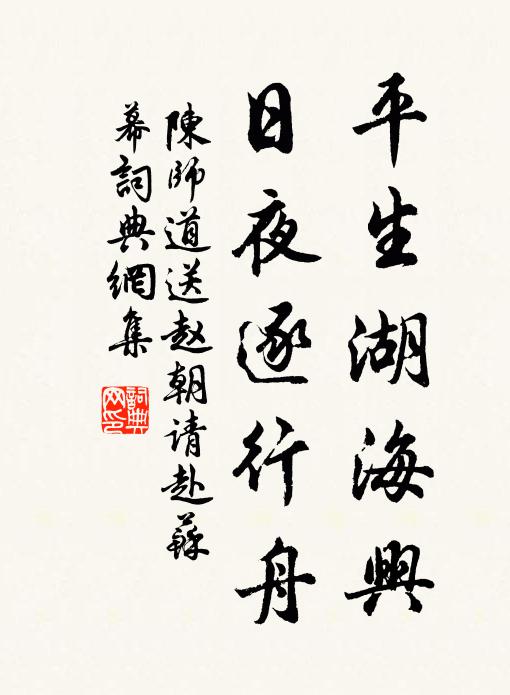 平生湖海興
日夜逐行舟
陳師道送赵朝请赴蘇
幕詞典網集
詞典网印